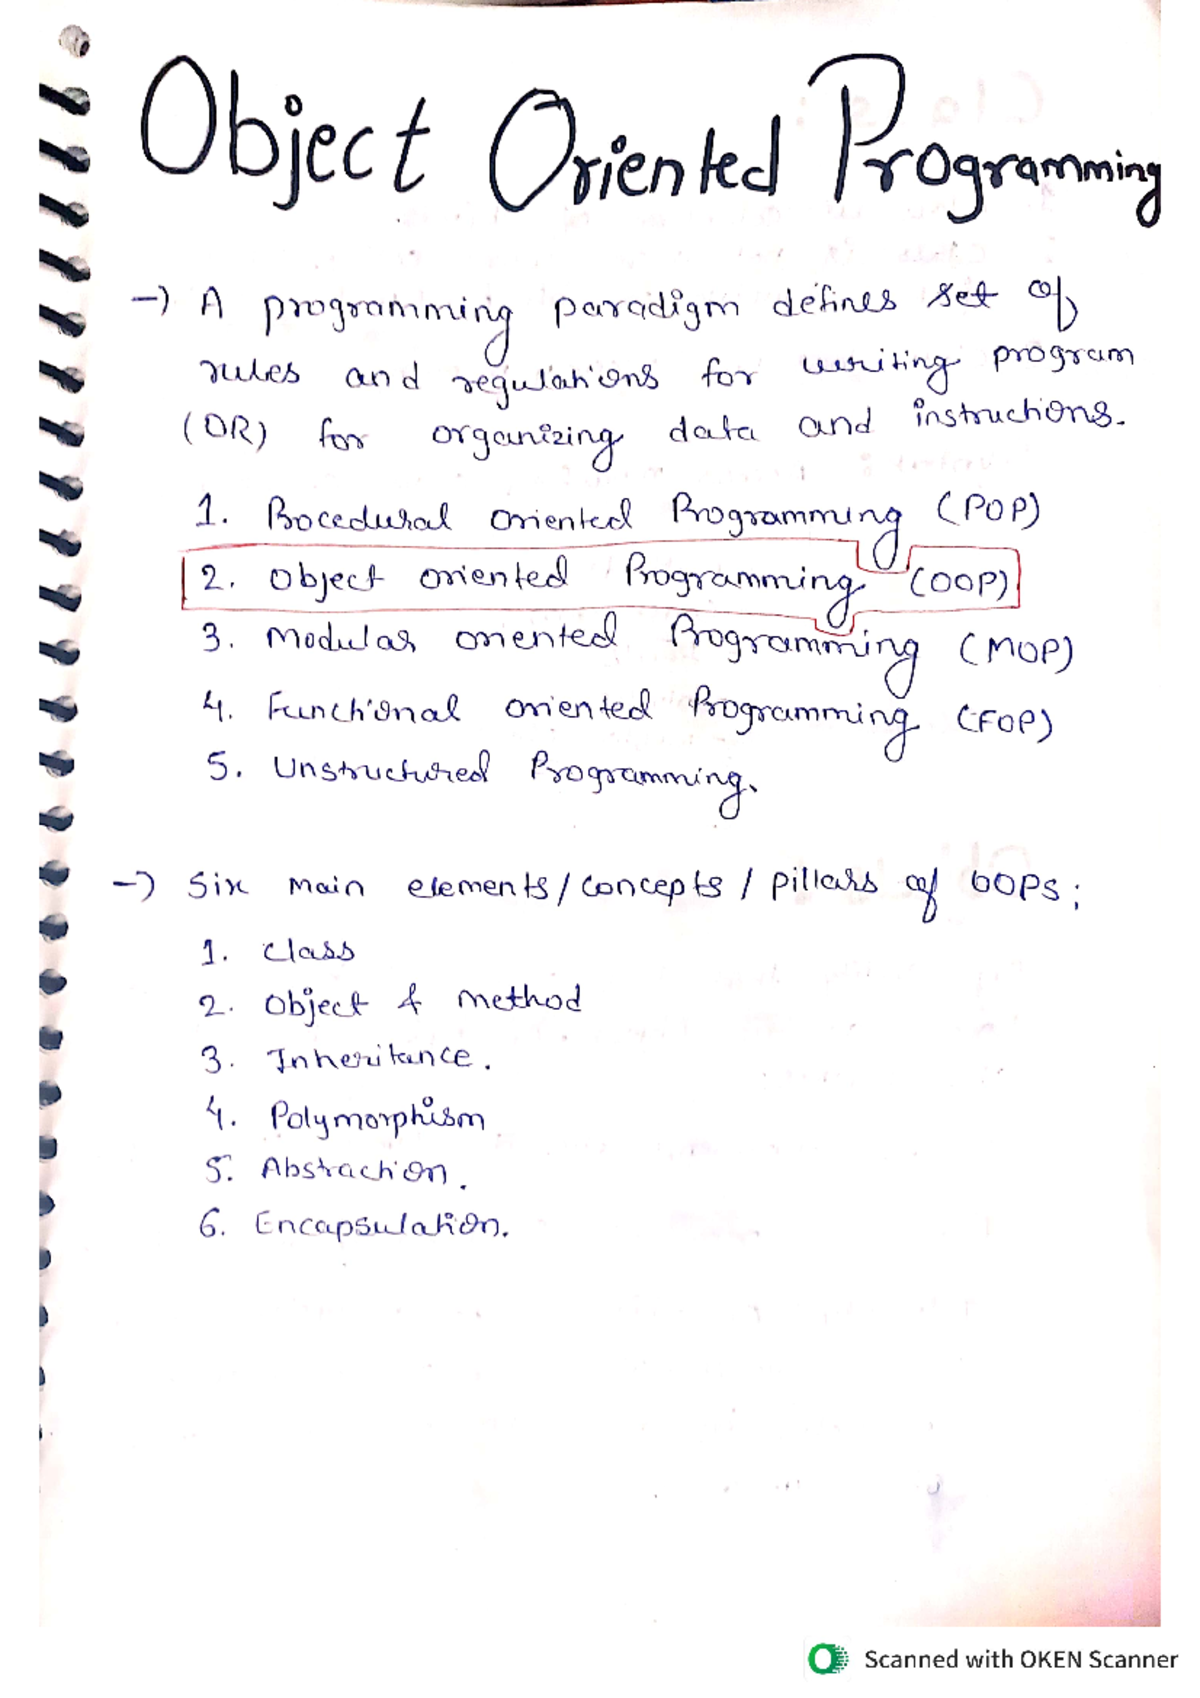 Object Oriented Programming
→ A programming paradigm defines set of
rules and regulations for writing program
(OR) for organizing data and instructions.
1. Procedural oriented Programming (POP)
2. Object oriented Programming (OOP)
3. Modular oriented Programming (MOP)
4. Functional oriented Programming (FOP)
5. Unstructured Programming.
→ Six main elements/concepts/pillars of OOPS:
1. Class
2. Object & method
3. Inheritance.
4. Polymorphism
5. Abstraction.
6. Encapsulation.
Scanned with OKEN Scanner